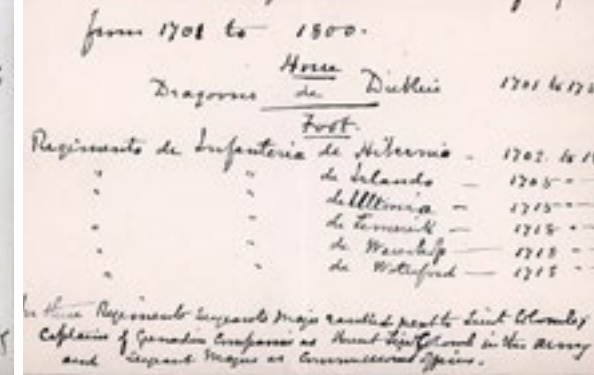 from 1701 to 1800.
Horse
Dragoons de Dublin 1701 to 17
Foot.
Regimento de Infanteria de Hibernia - 1702. to 1
" " de Irlanda - 1705 " -
" " de Ultonia - 1715 " -
" " de Limerick - 1718 " -
" " de - 1718 " -
" " de Waterford - 1718 " -
these Regiments Sergeants Major ranked next to Lieut Colonels,
Captains of Grenadier Companies as Lieut Colonel in the army
and Sergeant Majors as Commissioned Officers.